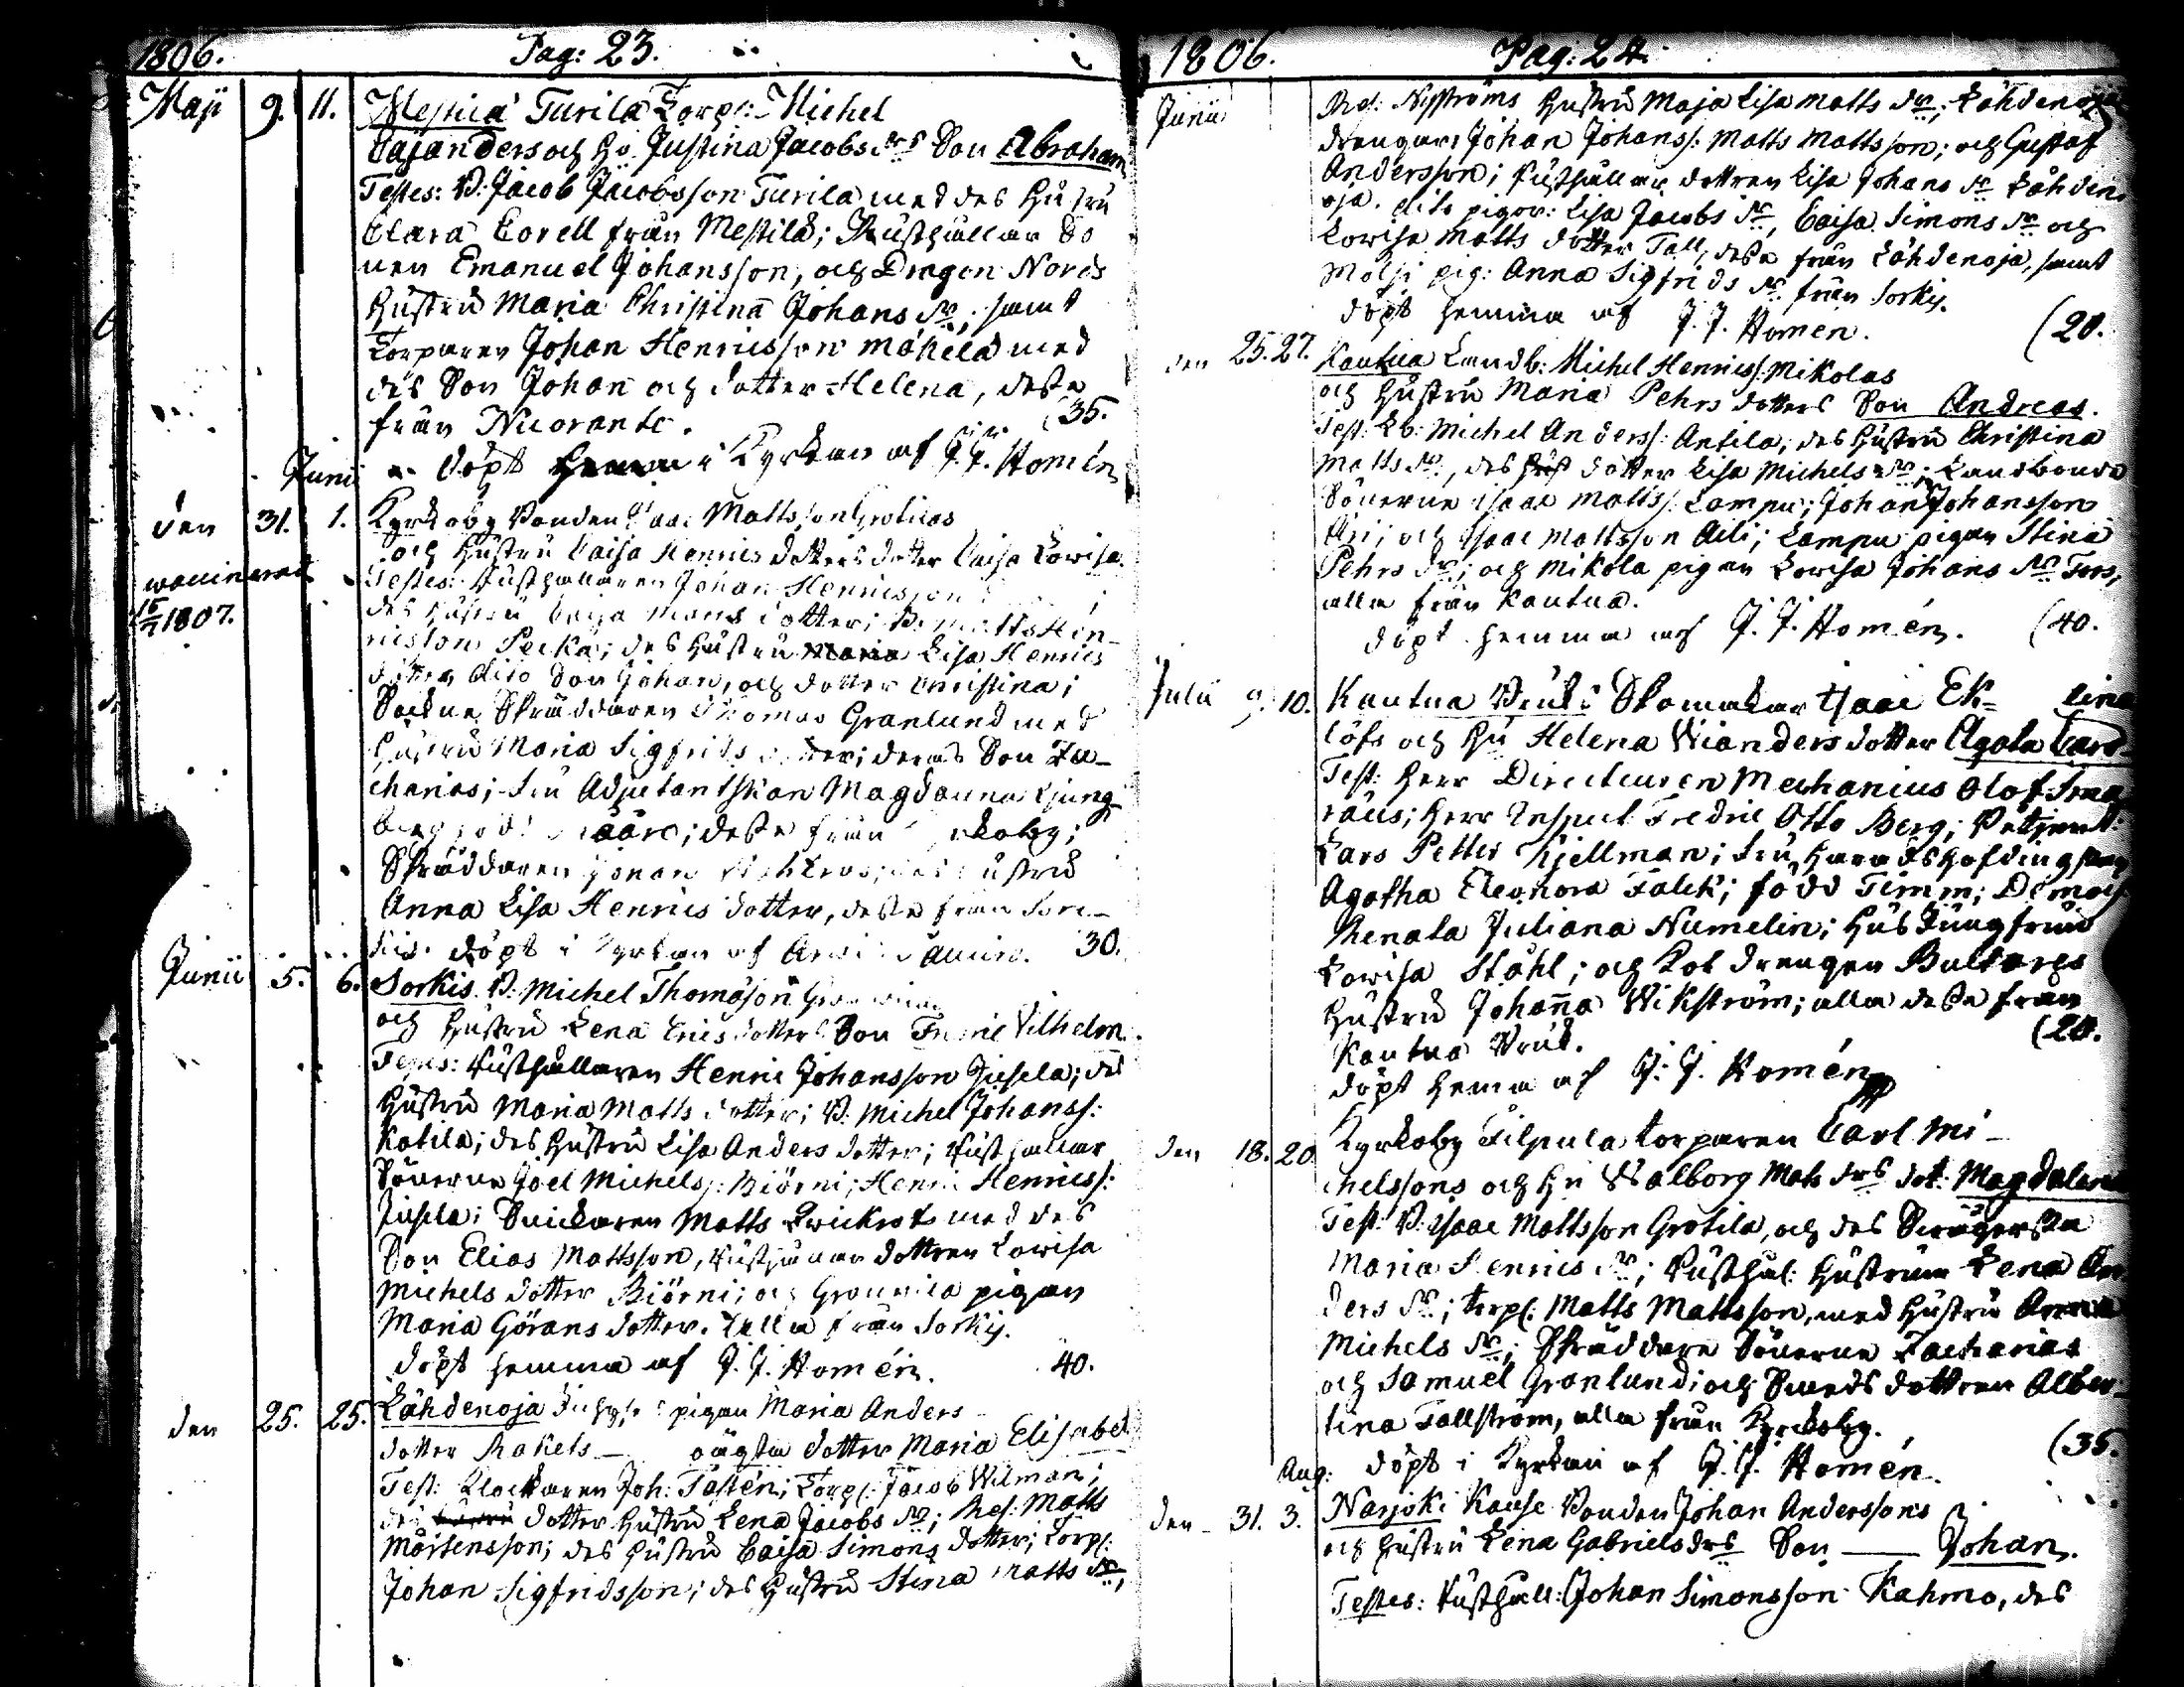 1806. Pag: 23.
Maji 9. 11. Mestilä Turila Torp: Michel
Cajanders och Hu Justina Jacobs drs Son Abraham
Testes: B: Jacob Jacobsson Turila med des Hustru
Clara Corell från Mestilä; Rusthållar So
nen Emanuel Johansson, och Dragon Nords
Hustru Maria Christina Johans dr, samt
Torparen Johan Henricsson Mäkelä med
des Son Johan och dotter Helena, desse
från Nuorante. (35.
Junii döpt i Kyrkan af J. J. Homén
den 31. 1. Kyrkoby Bonden Isaac Mattsson Grotilas
och Hustru Caisa Henrics dotters dotter Caisa Lowisa.
vaccinerad
15/7 1807.
Testes: Rusthållaren Johan Henricsson
des Hustru Caisa Matts dotter; B: Matts Hen-
ricsson Pecka; des Hustru Lisa Henrics
dotter dito Son Johan, och dotter Christina;
Sockne Skräddaren Thomas Granlund med
Hustru Maria Sigfrids dotter; deras Son Za-
charias; Fru Adjutantskan Magdaena Ljung
berg född; desse från Kyrkoby;
Skräddaren Johan; des Hustru
Anna Lisa Henrics dotter, desse från Sor-
kis. döpt i Kyrkan af 30.
Junii 5. 6. Sorkis B: Michel Thomasson
och Hustru Lena Erics dotters Son Fredric Vilhelm.
Testes: Rusthållaren Henric Johansson Jusela; des
Hustru Maria Matts dotter; B: Michel Johanss:
Katila; des Hustru Lisa Anders dotter; Rusthållar
Sönerne Joel Michels: Biörni; Henric Henricss:
Jusela; Snickaren Matts Qvickrot med des
Son Elias Mattsson, Rusthållar dottren Lowisa
Michels dotter Biörni; och pigan
Maria Görans dotter. alla från Sorkis.
döpt hemma af J. J. Homén. 40.
den 25. 25. Lähdenoja pigan Maria Anders
dotter Rakels — oägta dotter Maria Elisabet
Test: Klockaren Joh: Tasten; Torp: Jacob Wilman;
des dotter Hustru Lena Jacobs dr; Res: Matts
Mårtensson; des Hustru Caisa Simons dotter; Torp:
Johan Sigfridsson; des Hustru Stina Matts dr,
1806. Pag: 24.
Junii Res: Nyströms Hustru Maja Lisa Matts dr; Lähdenoja
drengar: Johan Johanss: Matts Mattsson; och Gustaf
Andersson; Rusthållar dottren Lisa Johans dr Lähden-
oja. dito pigor: Lisa Jacobs dr, Caisa Simons dr och
Lowisa Matts dotter Tall; desse från Lähdenoja, samt
pig: Anna Sigfrids dr från Sorkis.
döpt hemma af J. J. Homén. (20.
den 25. 27. Kautua Landb: Michel Henricss: Mikolas
och Hustru Maria Pehrs dotters Son Andreas.
Test: Lb: Michel Anderss: Antila; des Hustru Christina
Matts dr, des dotter Lisa Michels dr; Landbonde
Sönerne Isaac Mattss: Lampu; Johan Johansson
och Isaac Mattsson; Lampu pigan Stina
Pehrs dr; och Mikola pigan Lowisa Johans dr
alla från Kautua.
döpt hemma af J. J. Homén. (40.
Julii 9. 10. Kautua Bruk: Skomakar Isaac Ek= lina
löfs och Hu Helena Wianders dotter Agata Caro-
Test: Herr Directeuren Mechanicus Olof
räus; Herr Inspect Fredric Otto Berg;
Lars Petter Kjellman; Fru Häradshöfdingskan
Agatha Eleonora Falck; född Timm;
Renata Juliana Numelin; Hus Jungfrun
Lowisa Ståhl; och Kol drengen Bultares
Hustru Johanna Wikström; alla desse från
Kautua Bruk. (20.
döpt hemma af J. J. Homén
den 18. 20. Kyrkoby Filpula torparen Carl Mi-
chelssons och Hu Walborg Mats drs dot: Magdalena
Test: B: Isaac Mattsson Grotila, och des Swägerska
Maria Henrics dr; Rusthål: Hustrun Lena An
ders dr; torp: Matts Mattsson, med Hustru Anna
Michels dr; Skräddare Sönerne Zacharias
och Samuel Granlund; och Smeds dottren Alber-
tina Tallström, alla från Kyrckoby. (35.
Aug: döpt i Kyrkan af J. J. Homén.
den 31. 3. Narjoki Kause Bonden Johan Anderssons
och Hustru Lena Gabriels drs Son — Johan.
Testes: Rusthåll: Johan Simonsson Kahmo, des